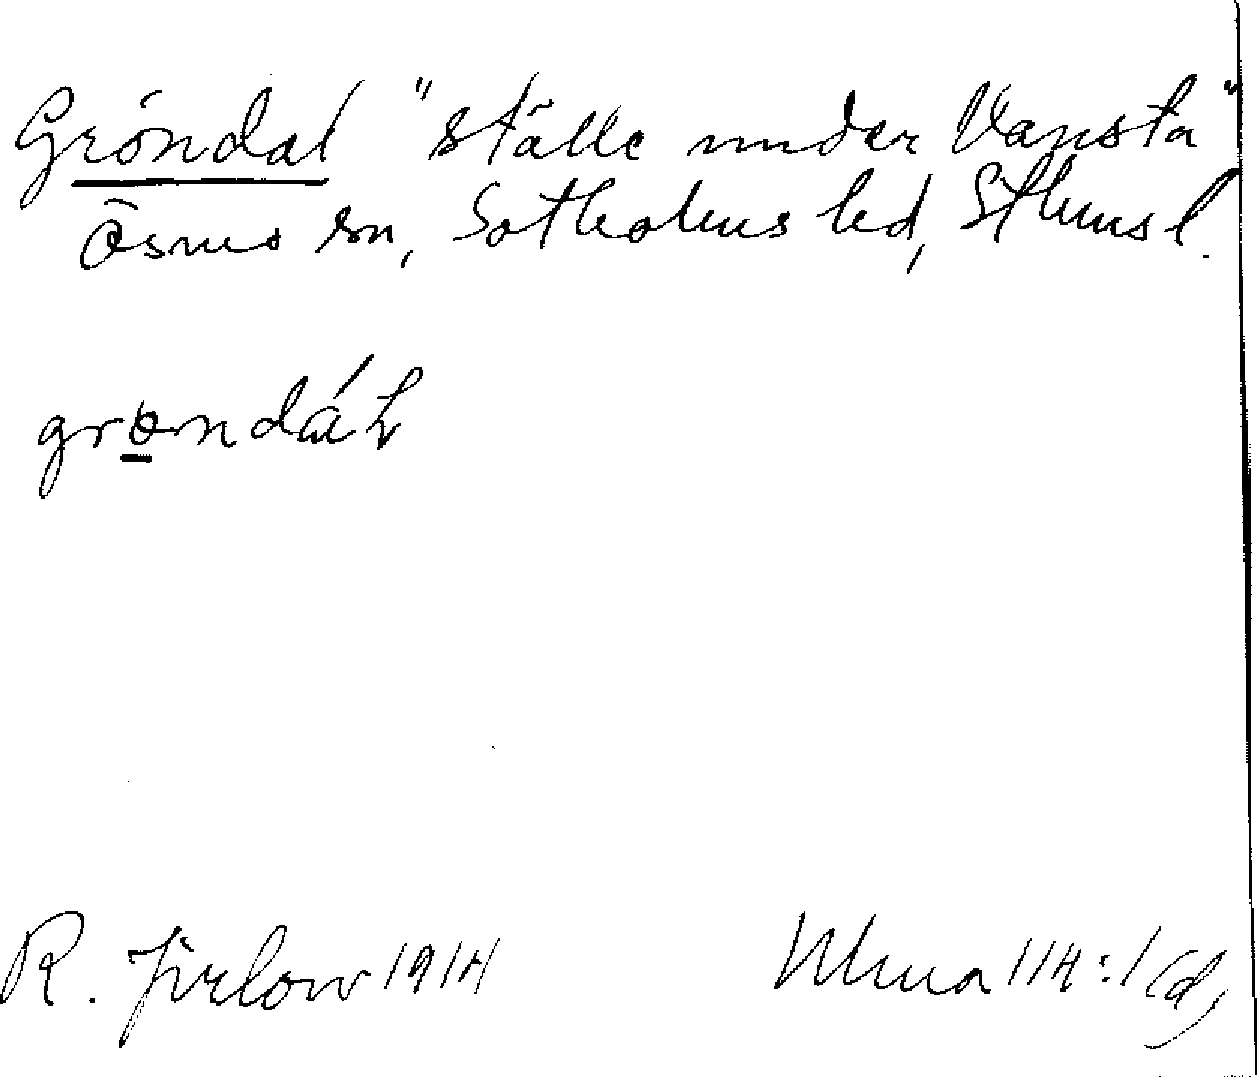 Gröndal "ställe under Vansta"
Ösmo sn, Sotholms hd, Sthms l.
grøndáɫ
R. Jirlow 1914